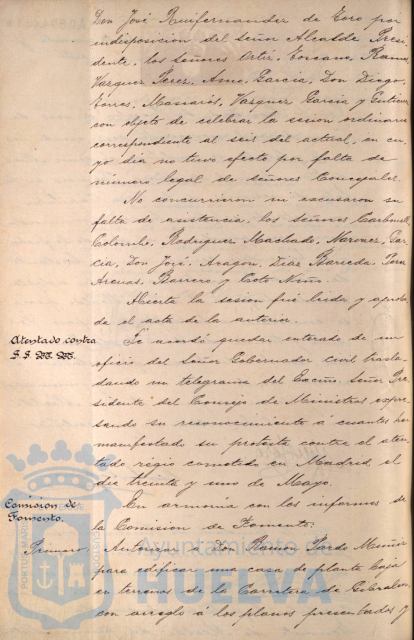 Don José Ruifernandez de Toro por
indisposicion del señor Alcalde Presi
dente, los señores Ortiz, Toscano, Ramos,
Vazquez Perez, Amo, Garcia, Don Diego,
Torres, Massarós, Vazquez Garcia y Gutierrez
con objeto de celebrar la sesion ordinaria
correspondiente al seis del actual, en cu,
yo dia no tuvo efecto por falta de
número legal de señores Concejales.
No concurrieron ni escusaron su
falta de asistencia, los señores Carbonell,
Rodriguez, Machado, Gar
cia, Don José, Aragon, Diaz Barreda,
Arenas, Barrero, y Coto Niño.
Abierta la sesion fué leida y aproba
da el acta de la anterior.
Atentado contra
S.S. M.M.
Se acordó quedar enterado de un
oficio del Señor Gobernador civil trasla
dando un telegrama del Excmo. Señor Pre
sidente del Consejo de Ministros, expre
sando su reconocimiento á cuantos han
manifestado su protesta contra el aten
tado régio cometido en Madrid, el
dia treinta y uno de Mayo.
Comision de
Fomento.
En armonia con los informes de
la Comision de Fomento:
Primero Autorizar á Don Ramon Pardo Muñoz
para edificar una casa de planta baja
en terrenos de la Carretera de Gibraleon,
con arreglo á los planos presentados y
Ayuntamiento
HUELVA